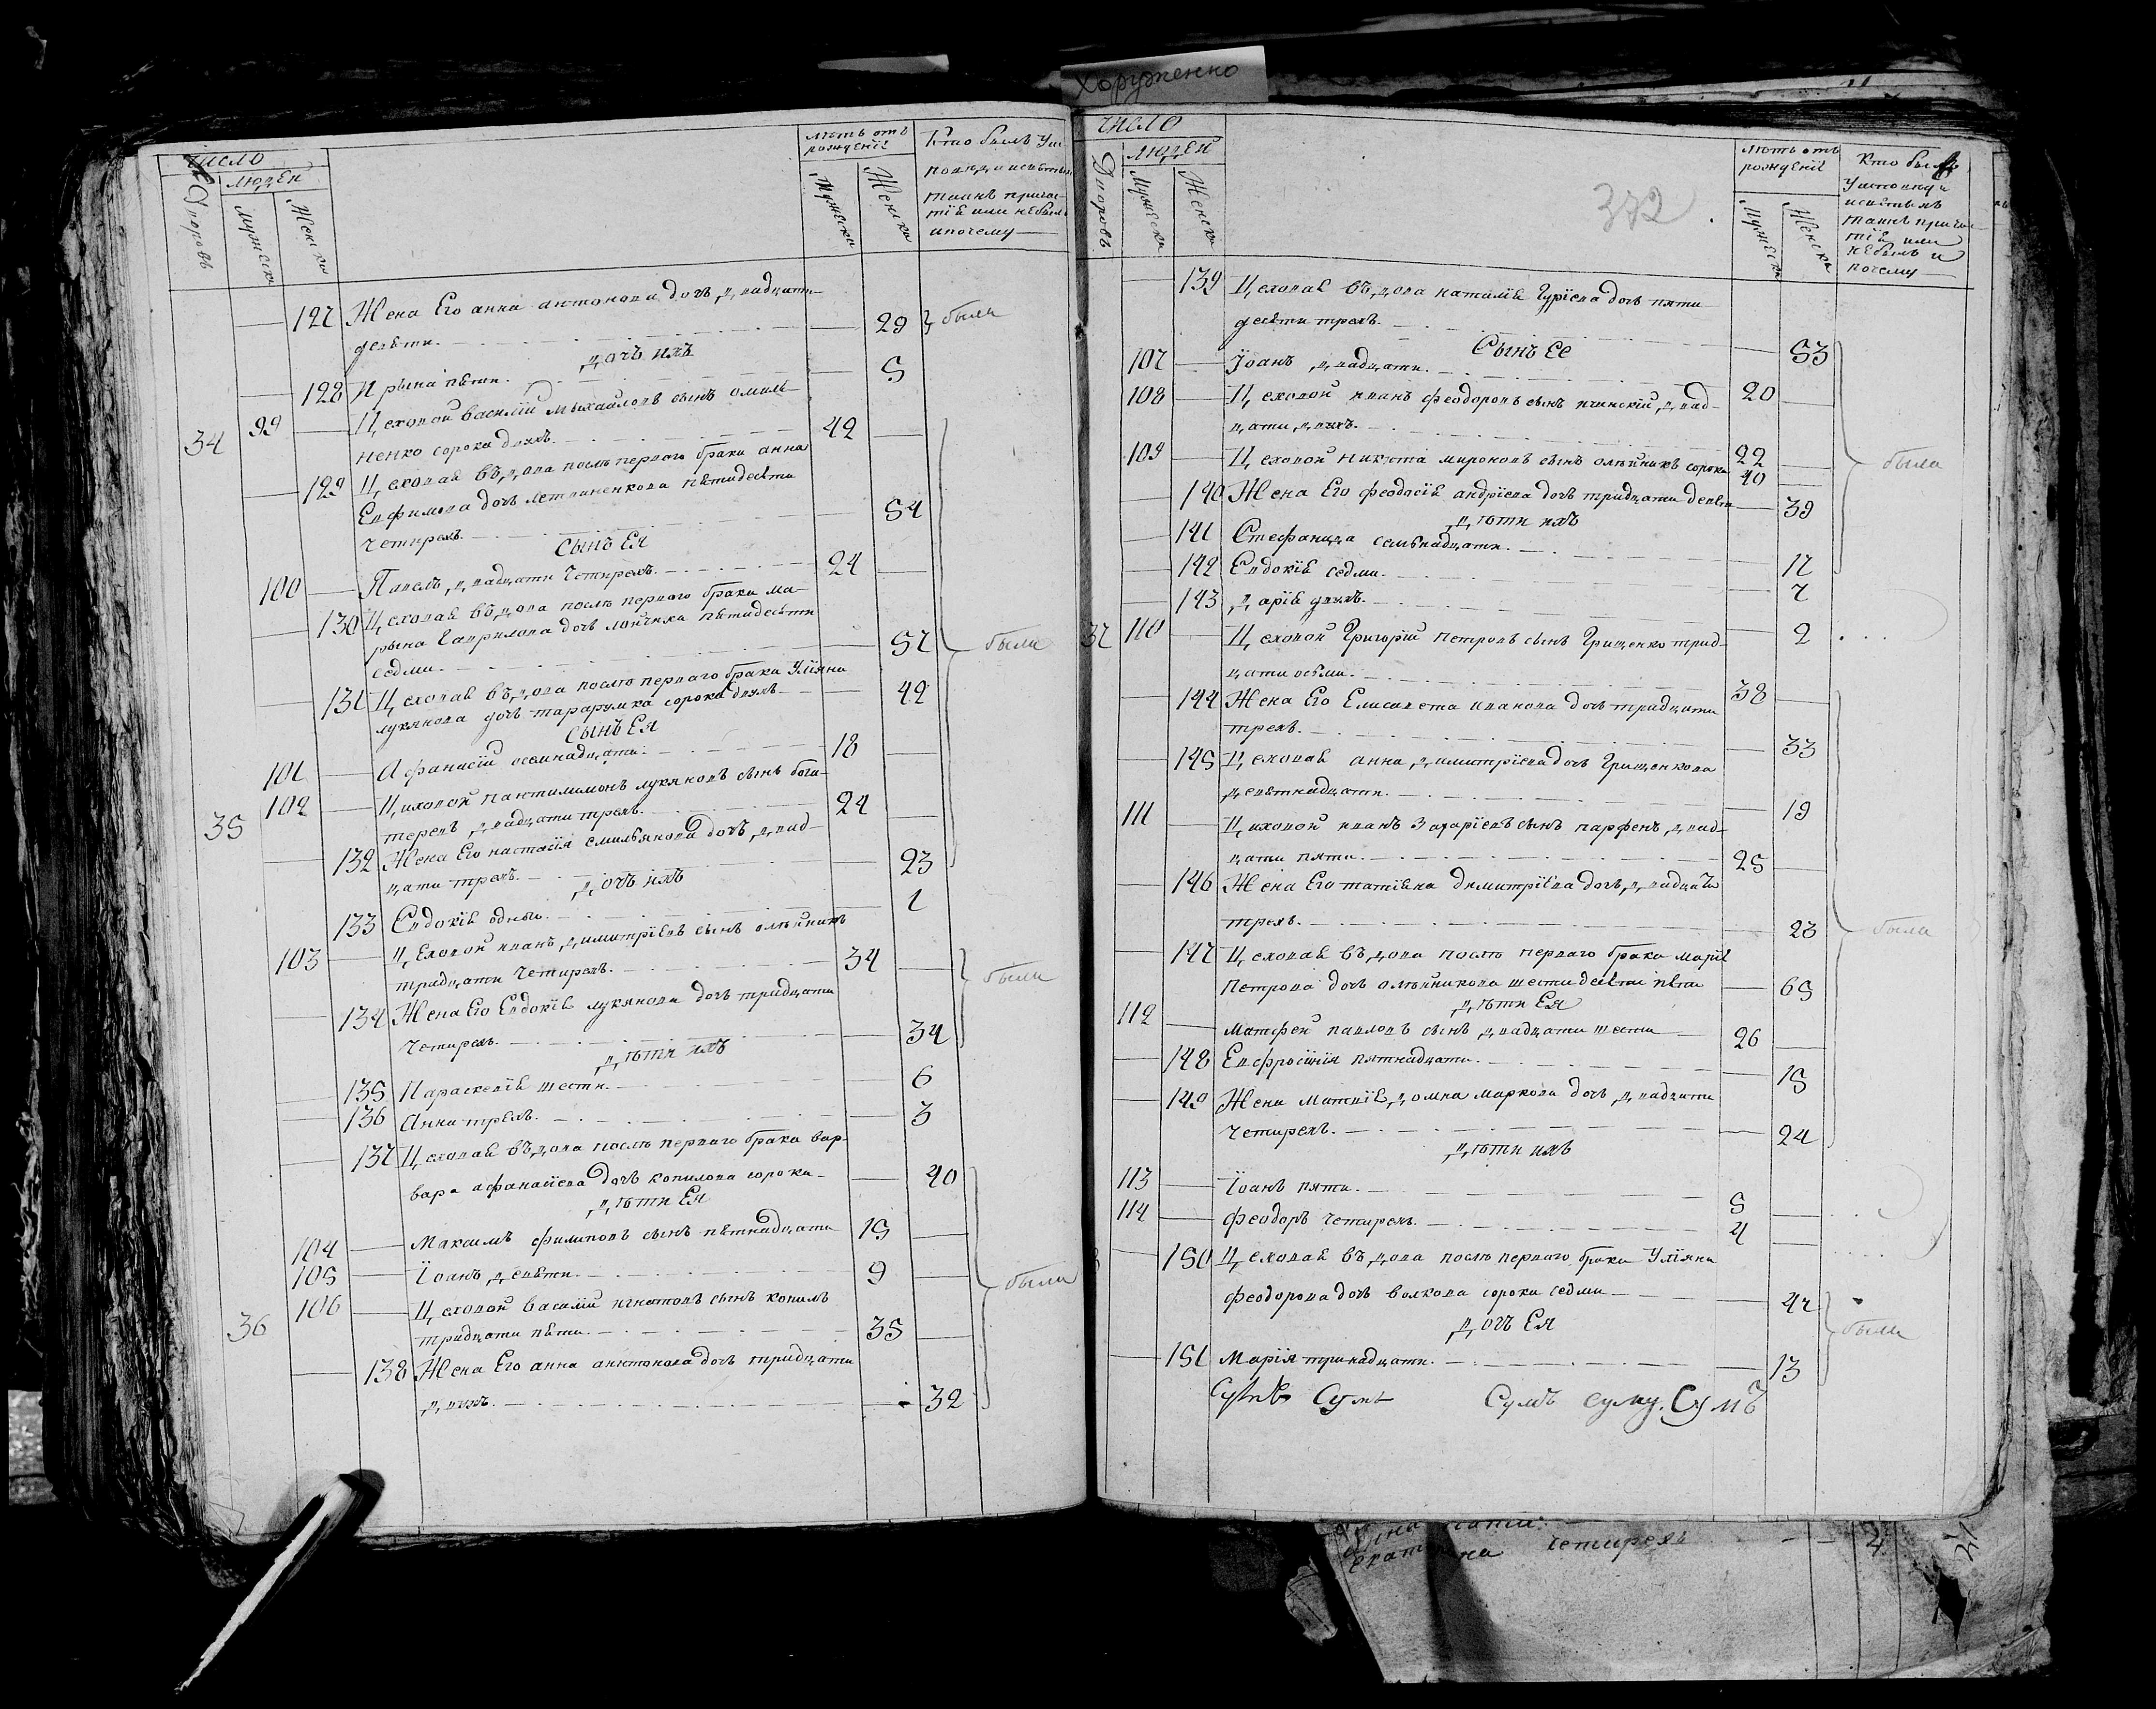 Хоруженко
число
люден
Дворовъ
Мужеска
Женска
лѣтъ отъ
рожденїѧ
Мужеска
Женска
Кто былъ у ис
таинъ прича-
тїѧ или небылъ
ипочему
127 Жена Его анна антонова дочъ двадцати
девѣти. 29 были
дочъ ихъ
128 Ирына пѣти. 5
34 99 Цеховой василїй мыхайловъ сынъ омилѣ-
ненко сорока двохъ. 42
129 Цеховаѧ вѣдова послѣ первого брака анна
Евфимова дочъ литвиненкова пѣтидесѣти
четирехъ. 54
Сынъ Еѧ
100 Павелъ двадцати четирехъ. 24
130 Цеховаѧ вѣдова послѣ первого брака ма-
рына Гаврилова дочъ пѣтидесѣти
седми. 57 были
131 Цеховаѧ вѣдова послѣ первого брака Улїѧна
лукянова дочъ тарарумка сорока двухъ 42
Сынъ Еѧ
101 Афанасїй осемнадцати. 18
35 102 Цеховой пантилимонъ лукяновъ сынъ бога-
теревъ двадцати трехъ. 24
132 Жена Его настасїѧ Емилѣянова дочъ двад-
цати трехъ. 23
дочъ ихъ
133 Евдокїѧ одного. 1
103 Цеховой иванъ димитрїевъ сынъ олѣйникъ
тридцати четирехъ. 34 были
134 Жена Его Евдокїѧ лукянова дочъ тридцати
четирехъ. 34
дѣти ихъ
135 Параскевїѧ шести. 6
136 Анна трехъ. 3
137 Цеховаѧ вѣдова послѣ первого брака вар-
вара афанасїева дочъ копилова сорока 40
дѣти Еѧ
104 Максимъ филиповъ сынъ пѣтнадцати 15
105 Їоанъ девѣти. 9 были
36 106 Цеховой василїй игнатовъ сынъ копилъ
тридцати пѣти. 35
138 Жена Его анна антонова дочъ тридцати
двухъ. 32
число
люден
Дворовъ
Мужеска
Женска
372
лѣтъ отъ
рожденїѧ
Мужеска
Женска
Кто былъ
у исповѣди
исвѣтыхъ
таинъ прича
тїѧ или
небылъ и
почему
139 Цеховаѧ вѣдова наталїѧ Гурїева дочъ пяти
десѣти трехъ. 53
Сынъ Ее
107 Їоанъ двадцати. 20
108 Цеховой иванъ феодоровъ сынъ двад-
цати двухъ. 22
109 Цеховой никита мироновъ сынъ олѣйникъ сорока 40 были
140 Жена Его феодосїѧ андрїева дочъ тридцати девѣти 39
дѣти ихъ
141 Стефанида семьнадцати. 17
142 Евдокїѧ седми. 7
143 дарїѧ двухъ. 2
37 110 Цеховой Григорїй петровъ сынъ Грищенко трид-
цати осьми. 38
144 Жена Его Елисавета иванова дочъ тридцати
трехъ. 33
145 Цеховаѧ анна димитрїева дочъ Грищенкова
девѣтнадцати. 19
111 Цеховой иванъ Захарїевъ сынъ парфенъ двад-
цати пяти. 25
146 Жена Его татїѧна димитрїева дочъ двадцати
трехъ. 23 были
147 Цеховаѧ вѣдова послѣ первого брака марїѧ
Петрова дочъ олѣйникова шестидесѣти пѣти 65
дѣти Еѧ
112 Матфей павловъ сынъ двадцати шести 26
148 Евфросинїя пятнадцати. 15
149 Жена Матвїѧ домна маркова дочъ двадцати
четирехъ. 24
дѣти ихъ
113 Їоанъ пяти. 5
114 Феодоръ четирехъ. 4
150 Цеховаѧ вѣдова послѣ первого брака Улїѧна
феодорова дочъ волкова сорока седми 47
дочъ Еѧ были
151 Марїя тринадцати. 13
Сумъ Сумъ суму. Сумъ
четирехъ 4